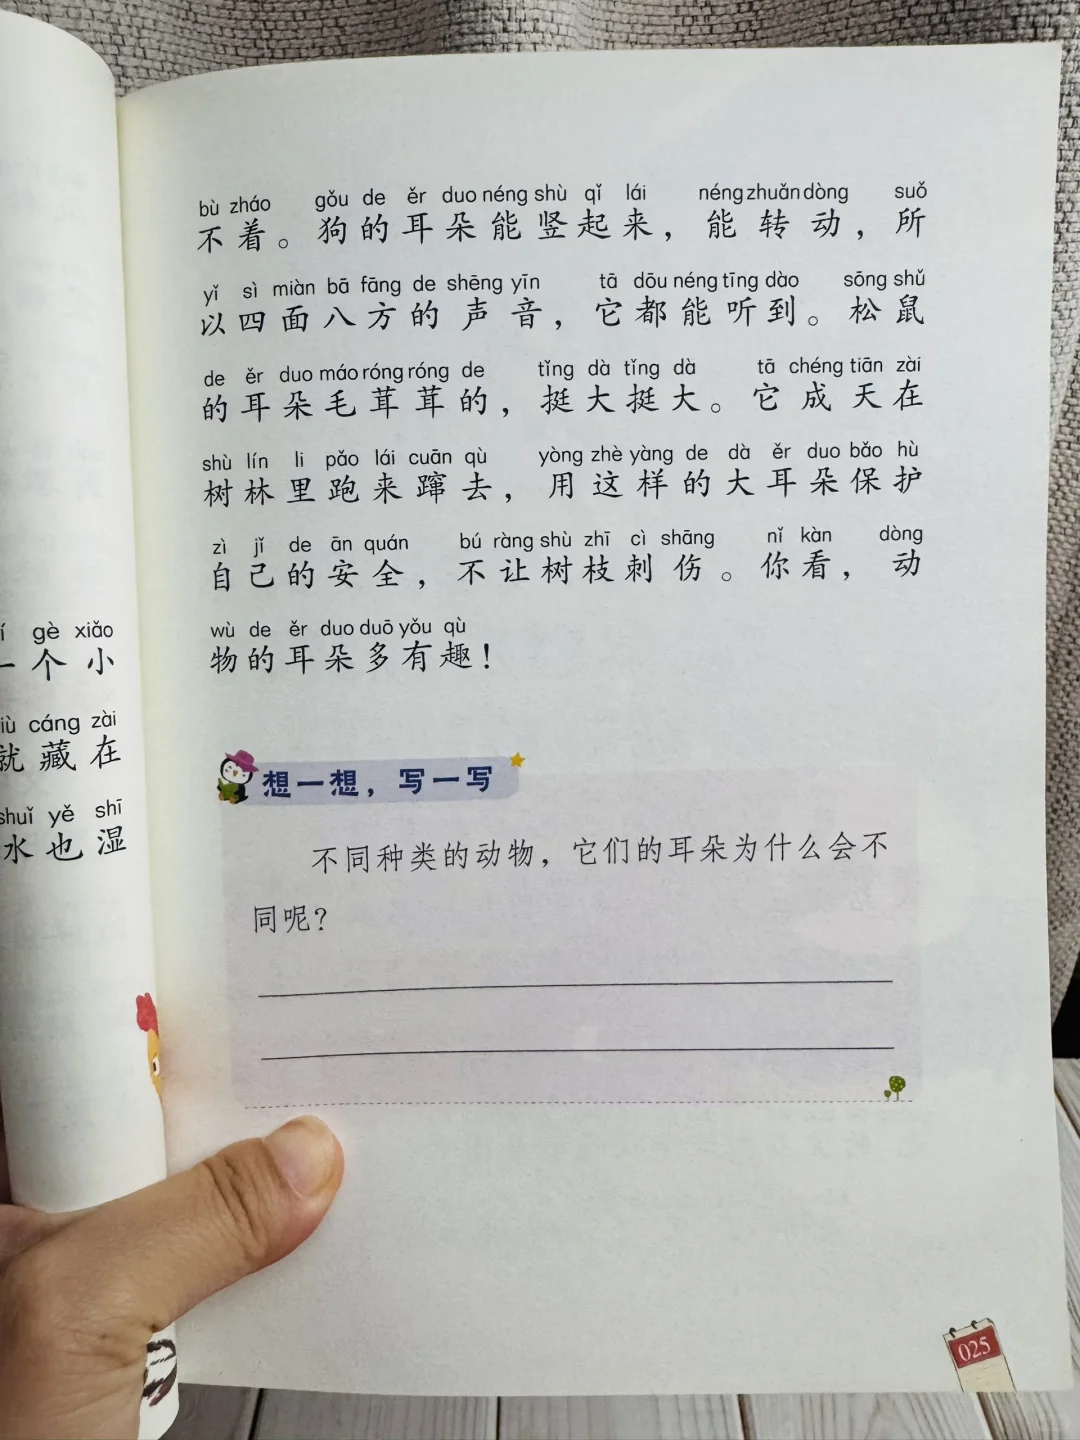 í gè xiǎo
个小
iù cáng zài
就藏在
shuǐ yě shī
水也湿
bù zháo gǒu de ěr duo néng shù qǐ lái néng zhuǎn dòng suǒ
不着。狗的耳朵能竖起来，能转动，所
yǐ sì miàn bā fāng de shēng yīn tā dōu néng tīng dào sōng shǔ
以四面八方的声音，它都能听到。松鼠
de ěr duo máo róng róng de tǐng dà tǐng dà tā chéng tiān zài
的耳朵毛茸茸的，挺大挺大。它成天在
shù lín li pǎo lái cuān qù yòng zhè yàng de dà ěr duo bǎo hù
树林里跑来蹿去，用这样的大耳朵保护
zì jǐ de ān quán bú ràng shù zhī cì shāng nǐ kàn dòng
自己的安全，不让树枝刺伤。你看，动
wù de ěr duo duō yǒu qù
物的耳朵多有趣！
想一想，写一写
不同种类的动物，它们的耳朵为什么会不
同呢？
025